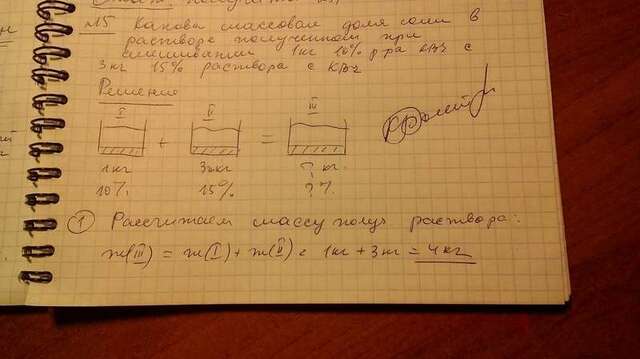 №15 Какова массовая доля соли в
растворе полученном при
смешивании 1кг 10% р-ра KBr с
3кг 15% раствора с KBr
Решение
I II III
+ =
1кг 3кг ? кг.
10% 15% ? %.
1 Рассчитаем массу получ раствора:
m(III) = m(I) + m(II) = 1кг + 3кг = 4кг